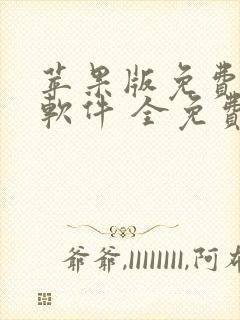 苹果版免费
軟件 全免費
爺爺,llllllll,阿布